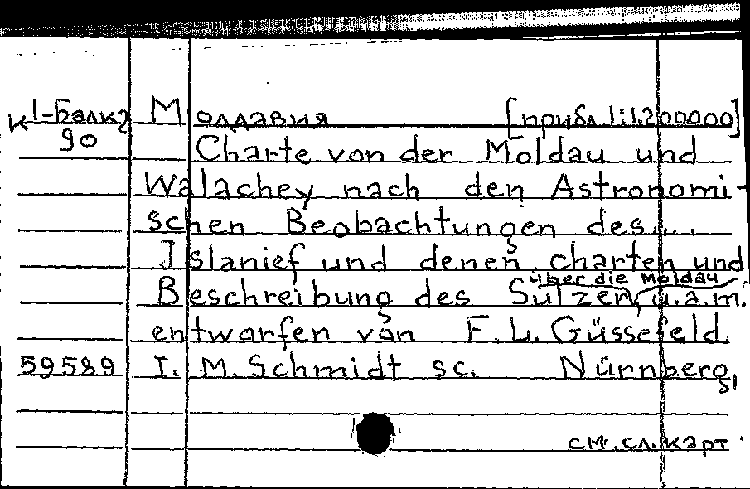 К1-Балк2 Молдавия [прибл. 1:1.200000]
90 Charte von der Moldau und
Walachey nach den Astronomi-
schen Beobachtungen des...
Islanief und denen charten und
über die Moldau
Beschreibung des Sulzer, u.a.m.
entworfen von F.L. Güssefeld.
59589 I. M. Schmidt sc. Nürnberg,
см. сл. карт.